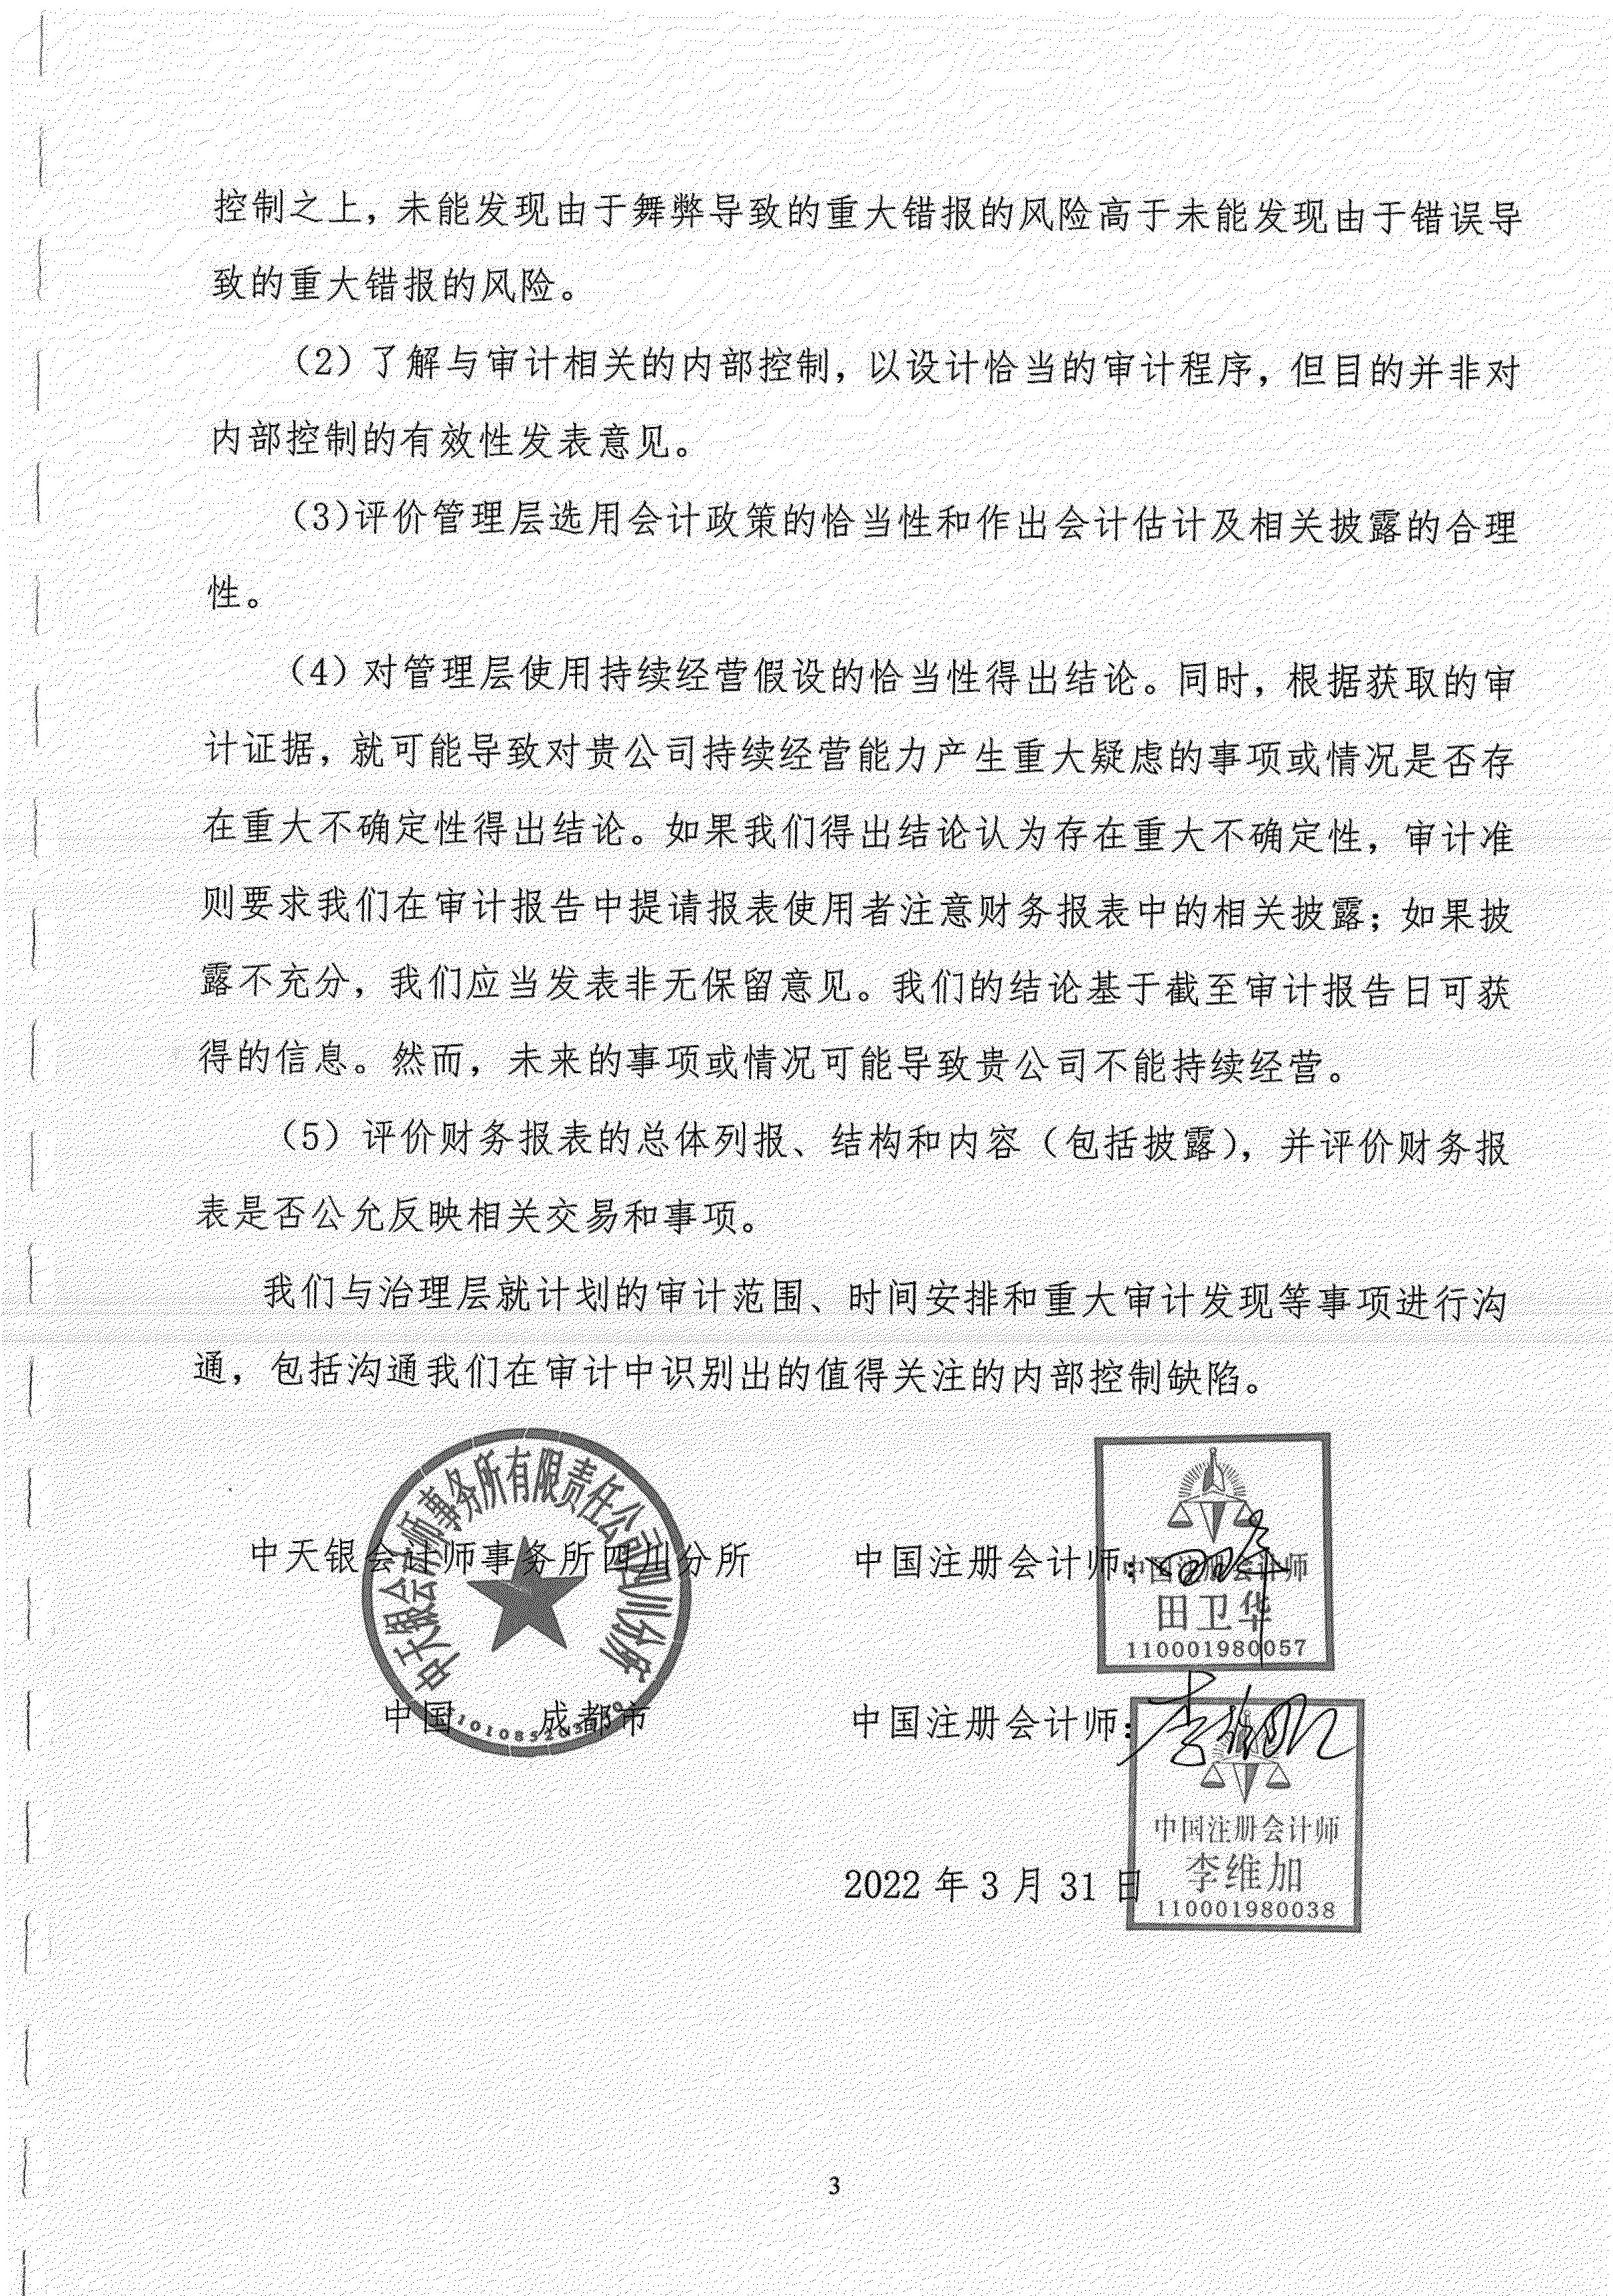 控制之上，未能发现由于舞弊导致的重大错报的风险高于未能发现由于错误导
致的重大错报的风险。
（2）了解与审计相关的内部控制，以设计恰当的审计程序，但目的并非对
内部控制的有效性发表意见。
（3）评价管理层选用会计政策的恰当性和作出会计估计及相关披露的合理
性。
（4）对管理层使用持续经营假设的恰当性得出结论。同时，根据获取的审
计证据，就可能导致对贵公司持续经营能力产生重大疑虑的事项或情况是否存
在重大不确定性得出结论。如果我们得出结论认为存在重大不确定性，审计准
则要求我们在审计报告中提请报表使用者注意财务报表中的相关披露；如果披
露不充分，我们应当发表非无保留意见。我们的结论基于截至审计报告日可获
得的信息。然而，未来的事项或情况可能导致贵公司不能持续经营。
（5）评价财务报表的总体列报、结构和内容（包括披露），并评价财务报
表是否公允反映相关交易和事项。
我们与治理层就计划的审计范围、时间安排和重大审计发现等事项进行沟
通，包括沟通我们在审计中识别出的值得关注的内部控制缺陷。
中天银会计师事务所有限责任公司四川分所
中天银会计师事务所四川分所
中国注册会计师：
中国注册会计师
田卫华
110001980057
中国 成都市
中国注册会计师：
中国注册会计师
李维加
110001980038
2022 年 3 月 31 日
3